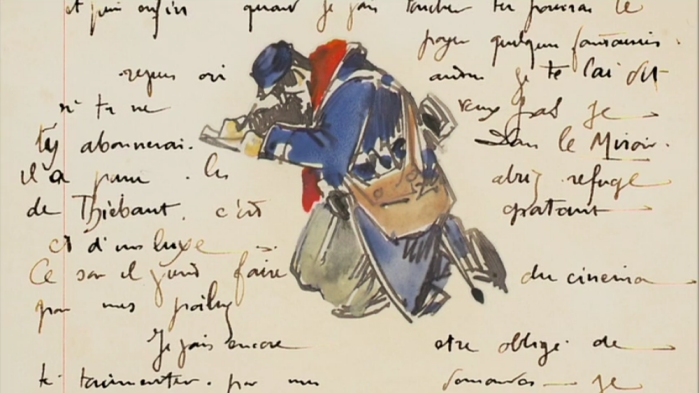 et puis enfin quand je fais toucher tu pourras te
payer quelques fantaisies.
reçus où je te l'ai dit
si tu ne veux pas je
t'y abonnerai. Dans le Miroir.
il a paru. les abris refuge
de Thiébaut. c'est gratuit
et d'un luxe
Ce soir il faire du cinema
par mes poilus
Je vais encore etre obligé de
te tourmenter. par mes demandes je